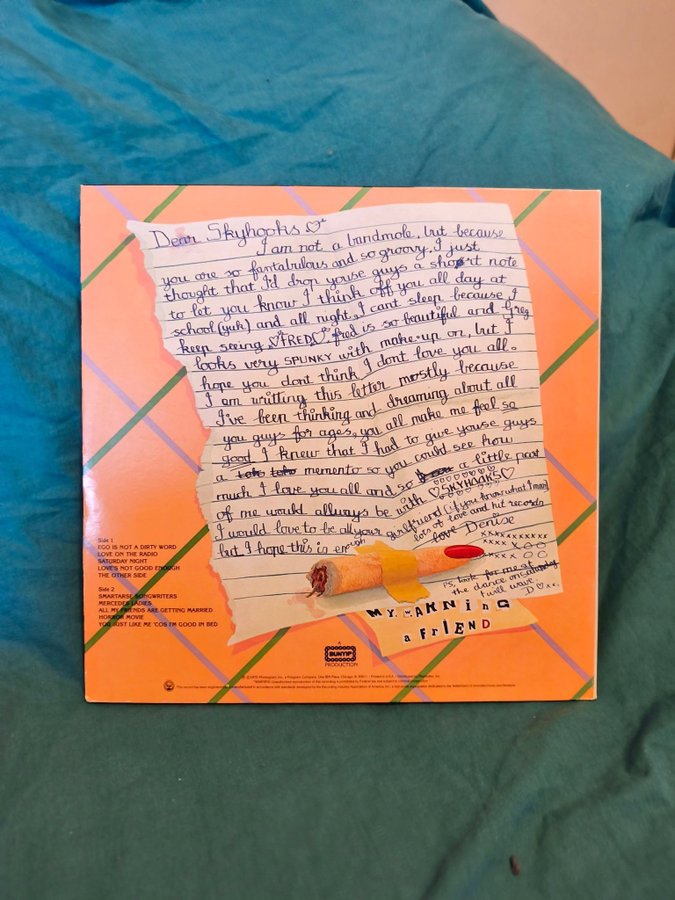 Dear Skyhooks
I am not a bandmole, but because
you are so fantabulous and so groovy. I just
thought that I'd drop youse guys a short note
to let you know I think off you all day at
school (yuk) and all night, I cant sleep because I
keep seeing FRED. Fred is so beautiful and Greg
looks very SPUNKY with make-up on, but I
hope you dont think I dont love you all.
I am writting this letter mostly because
I've been thinking and dreaming about all
you guys for ages, you all make me feel so
good I knew that I had to give youse guys
a memento so you could see how
much I love you all and so a little part
of me would allways be with SKYHOOKS
I would love to be all your girlfriend (if you know what I mean)
but I hope this is enough lots of love and hit records
love Denise
xxxxxxxxxx
xxxx X O O
xxxx X O O
P.S. look for me at
the dance on saturday
I will wave
D xx
MY WARNiNG
a FrIEND
Side 1
EGO IS NOT A DIRTY WORD
LOVE ON THE RADIO
SATURDAY NIGHT
LOVE'S NOT GOOD ENOUGH
THE OTHER SIDE
Side 2
SMARTARSE SONGWRITERS
MERCEDES LADIES
ALL MY FRIENDS ARE GETTING MARRIED
HORROR MOVIE
YOU JUST LIKE ME 'COS I'M GOOD IN BED
A
BUNYIP
PRODUCTION